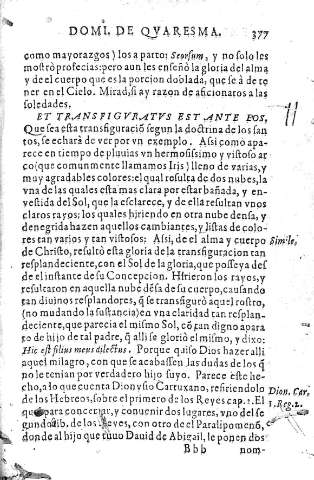 DOMI. DE QVARESMA. 377
como mayorazgos) los aparto: Seorsum, y no solo les
mostrò profecias: pero aun les enseñò la gloria del alma
y de el cuerpo que es la porcion doblada, que se à de te
ner en el Cielo. Mirad, si ay razon de aficionaros a las
soledades.
ET TRANSFIGVRATVS EST ANTE EOS,
Que sea esta transfiguraciõ segun la doctrina de los san
tos, se echarà de ver por vn exemplo. Assi como apa-
rece en tiempo de pluuias vn hermosissimo y vistoso ar
co (que comunmente llamamos Iris) lleno de varias, y
muy agradables colores: el qual resulta de dos nubes, la
vna de las quales esta mas clara por estar bañada, y en-
vestida del Sol, que la esclarece, y de ella resultan vnos
claros rayos; los quales hiriendo en otra nube densa, y
denegrida hazen aquellos cambiantes, y listas de colo-
res tan varios y tan vistosos: Assi, de el alma y cuerpo
Simile.
de Christo, resultò esta gloria de la transfiguracion tan
resplandeciente, con el Sol de la gloria, que posseya des
de el instante de su Concepcion. Hirieron los rayos, y
resultaron en aquella nube dẽsa de su cuerpo, causando
tan diuinos resplandores, q̃ se transfigurò aquel rostro,
(no mudando la sustancia) en vna claridad tan resplan-
deciente, que parecia el mismo Sol, cõ tan digno apara
to de hijo de tal padre, q̃ alli se gloriò el mismo, y dixo:
Hic est filius meus dilectus. Porque quiso Dios hazer alli
aquel milagro, con que se acabassen las dudas de los q̃
no le tenian por verdadero hijo suyo. Parece este he-
cho, a lo que cuenta Dionysio Cartuxano, refiriendolo
Dion. Car.
de los Hebreos, sobre el primero de los Reyes cap. 2. El
1. Reg. 2.
qual para concertar, y conuenir dos lugares, vno del se
gundo lib. de los Reyes, con otro de el Paralipomenõ,
donde al hijo que tuuo Dauid de Abigail, le ponen dos
Bbb nom-